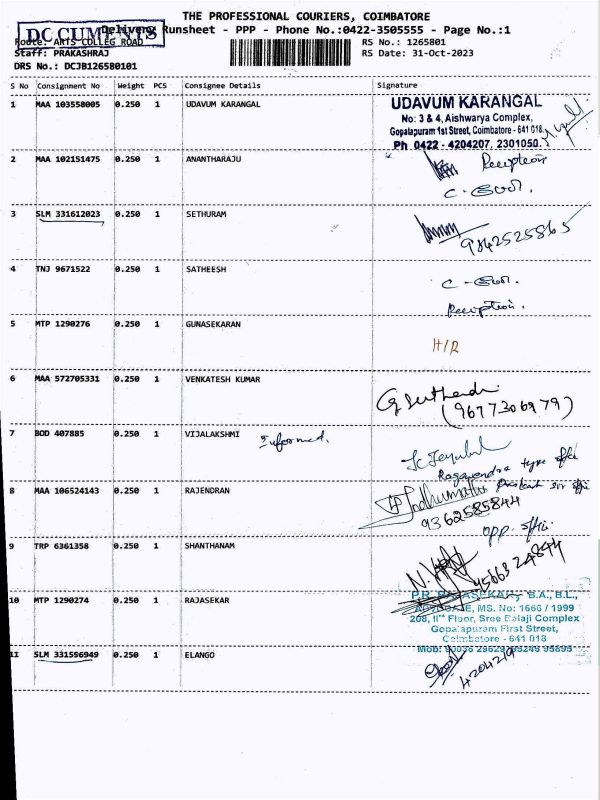 THE PROFESSIONAL COURIERS, COIMBATORE
DOCUMENTS
Delivery Runsheet - PPP - Phone No.:0422-3505555 - Page No.:1
Route: ARTS COLLEG ROAD
RS No.: 1265801
Staff: PRAKASHRAJ
RS Date: 31-Oct-2023
DRS No.: DCJB126580101
S No Consignment No Weight PCS Consignee Details Signature
1 MAA 103558005 0.250 1 UDAVUM KARANGAL
UDAVUM KARANGAL
No: 3 & 4, Aishwarya Complex,
Gopalapuram 1st Street, Coimbatore - 641 018.
Ph 0422 - 4204207, 2301050.
2 MAA 102151475 0.250 1 ANANTHARAJU
Reception
3 SLM 331612023 0.250 1 SETHURAM
9842525865
4 TNJ 9671522 0.250 1 SATHEESH
Reception.
5 MTP 1290276 0.250 1 GUNASEKARAN
H/R
6 MAA 572705331 0.250 1 VENKATESH KUMAR
(9677306979)
7 BOD 407885 1 0.250 1 VIJALAKSHMI Informed.
Ragavendra type
8 MAA 106524143 0.250 1 RAJENDRAN
9362585844
opp.
9 TRP 6361358 0.250 1 SHANTHANAM
10 MTP 1290274 0.250 1 RAJASEKAR
P.R. RAJASEKAR, B.A., B.L.,
ADVOCATE, MS. No: 1666 / 1999
208, IInd Floor, Sree Balaji Complex
Gopalapuram First Street,
Coimbatore - 641 018
11 SLM 331596949 0.250 1 ELANGO